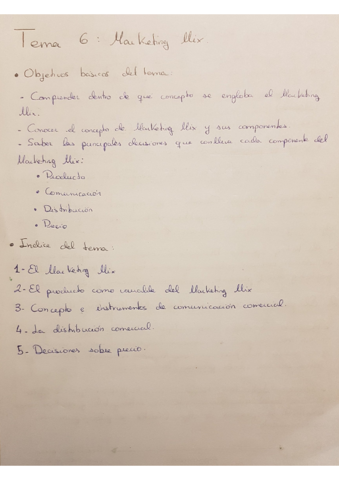 Tema 6: Marketing Mix
• Objetivos basicos del tema:
- Comprender dentro de que concepto se engloba el Marketing
Mix.
- Conocer el concepto de Marketing Mix y sus componentes
- Saber las principales decisiones que conlleva cada componente del
Marketing Mix:
• Producto
• Comunicación
• Distribución
• Precio
• Índice del tema:
1- El Marketing Mix
2- El producto como variable del Marketing Mix
3- Concepto e instrumentos de comunicación comercial.
4- La distribución comercial.
5- Decisiones sobre precio.